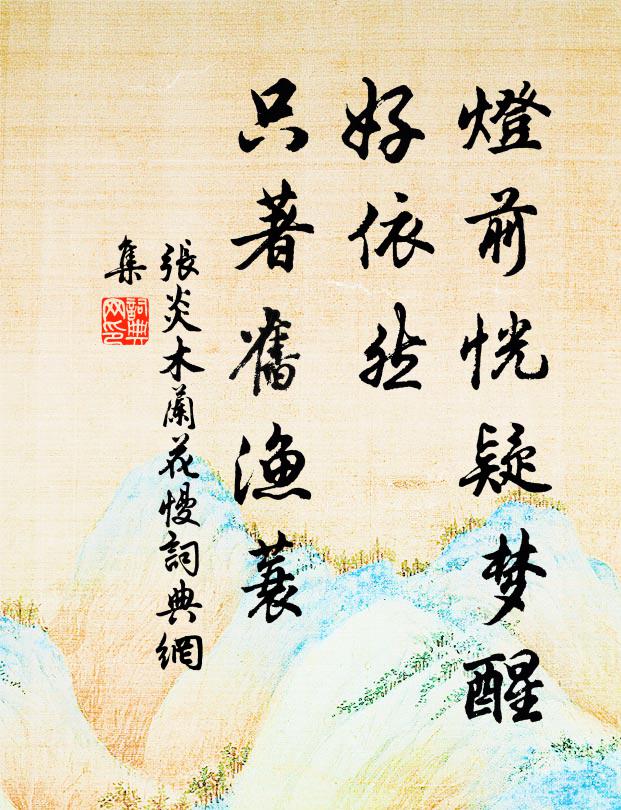 燈前恍疑梦醒
好依然
只著舊漁蓑
張炎木蘭花慢詞典網
集
詞典网印